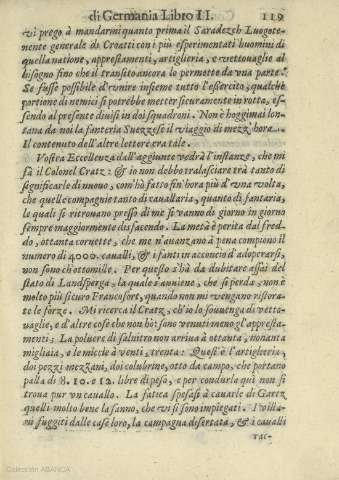 di Germania Libro II. 119
vi prego à mandarmi quanto prima il Saradezch Luogote-
nente generale di Croatti con i più esperimentati huomini di
quella natione, apprestamenti, artiglieria, e vettouaglie al
bisogno sino che il transito ancora lo permette da vna parte.
Se fusse possibile d'vnire insieme tutto l'essercito, qualche
portione di nemici si potrebbe metter sicuramente in rotta, es-
sendo al presente diuisi in doi squadroni. Non è hoggimai lon-
tana da noi la fanteria Suezzese il viaggio di mezz'hora.
Il contenuto dell'altre lettere era tale.
Vostra Eccellenza dall'aggiunte vedrà l'instanze, che mi
fà il Colonel Cratz: & io non debbo tralasciare trà tanto di
significarle di nuouo, com'hò fatto fin'hora più d'vna volta,
che quelle compagnie tanto di cauallaria, quanto di fantaria,
le quali si ritrouano presso di me si vanno di giorno in giorno
sempre maggiormente disfacendo. La metà è perita dal fred-
do, ottanta cornette, che me n'auanzano à pena compiono il
numero di 4000. caualli, & i fanti in acconcio d'adoperarsi,
non sono ch'ottomille. Per questo s'hà da dubitare assai del
stato di Landsperga, la quale s'auuiene, che si perda, non è
molto più sicuro Francofort, quando non mi vengano ristora-
te le forze. Mi ricerca il Cratz, ch'io lo souuenga di vetto-
uaglie, e d'altre cose che non hò: sono venuti meno gl'appresta-
menti; La poluere di salnitro non arriua à ottanta, nonanta
migliaia, e le miccie à venti, trenta: Quest'è l'artiglieria,
doi pezzi mezzani, doi colubrine, otto da campo, che portano
palla di 8. 10. e 12. libre di peso, e per condurla quì non si
troua pur vn cauallo. La fatica spesasi à cauarle di Gartz
quelli molto bene la sanno, che vi si sono impiegati. I villa-
ni fuggiti dalle case loro, la campagna disertata, & i caualli
rac-
Colección ABANCA